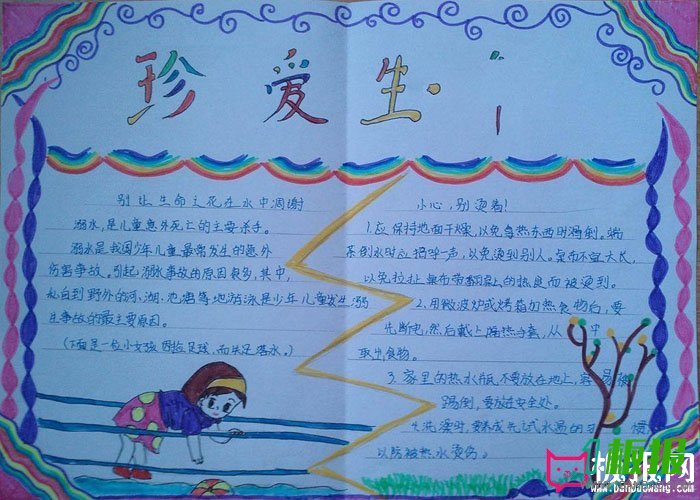 珍爱生
别让生命之花在水中凋谢
溺水,是儿童意外死亡的主要杀手。
溺水是我国少年儿童最常发生的意外
伤害事故。引起溺水事故由原因很多,其中,
私自到野外的河、湖、池塘等地游泳是少年儿童发生溺
水事故的最主要原因。
(下面是一位小女孩因捡足球,而失足落水。)
小心,别烫着!
1.应保持地面干燥,以免拿热东西时滑倒。端
茶倒水时应招呼一声,以免烫到别人。桌布不宜太长,
以免拉扯桌布带翻桌上的热皮而被烫到。
2.用微波炉或烤箱加热食物后,要
先断电,然后戴上隔热手套,从 中
取出食物。
3.家里的热水瓶不要放在地上,容易被
踢倒,要放在安全处。
4.洗澡时,要养成先试水温的
以防被热水烫伤。
板报
板报网
www.banbaowang.com